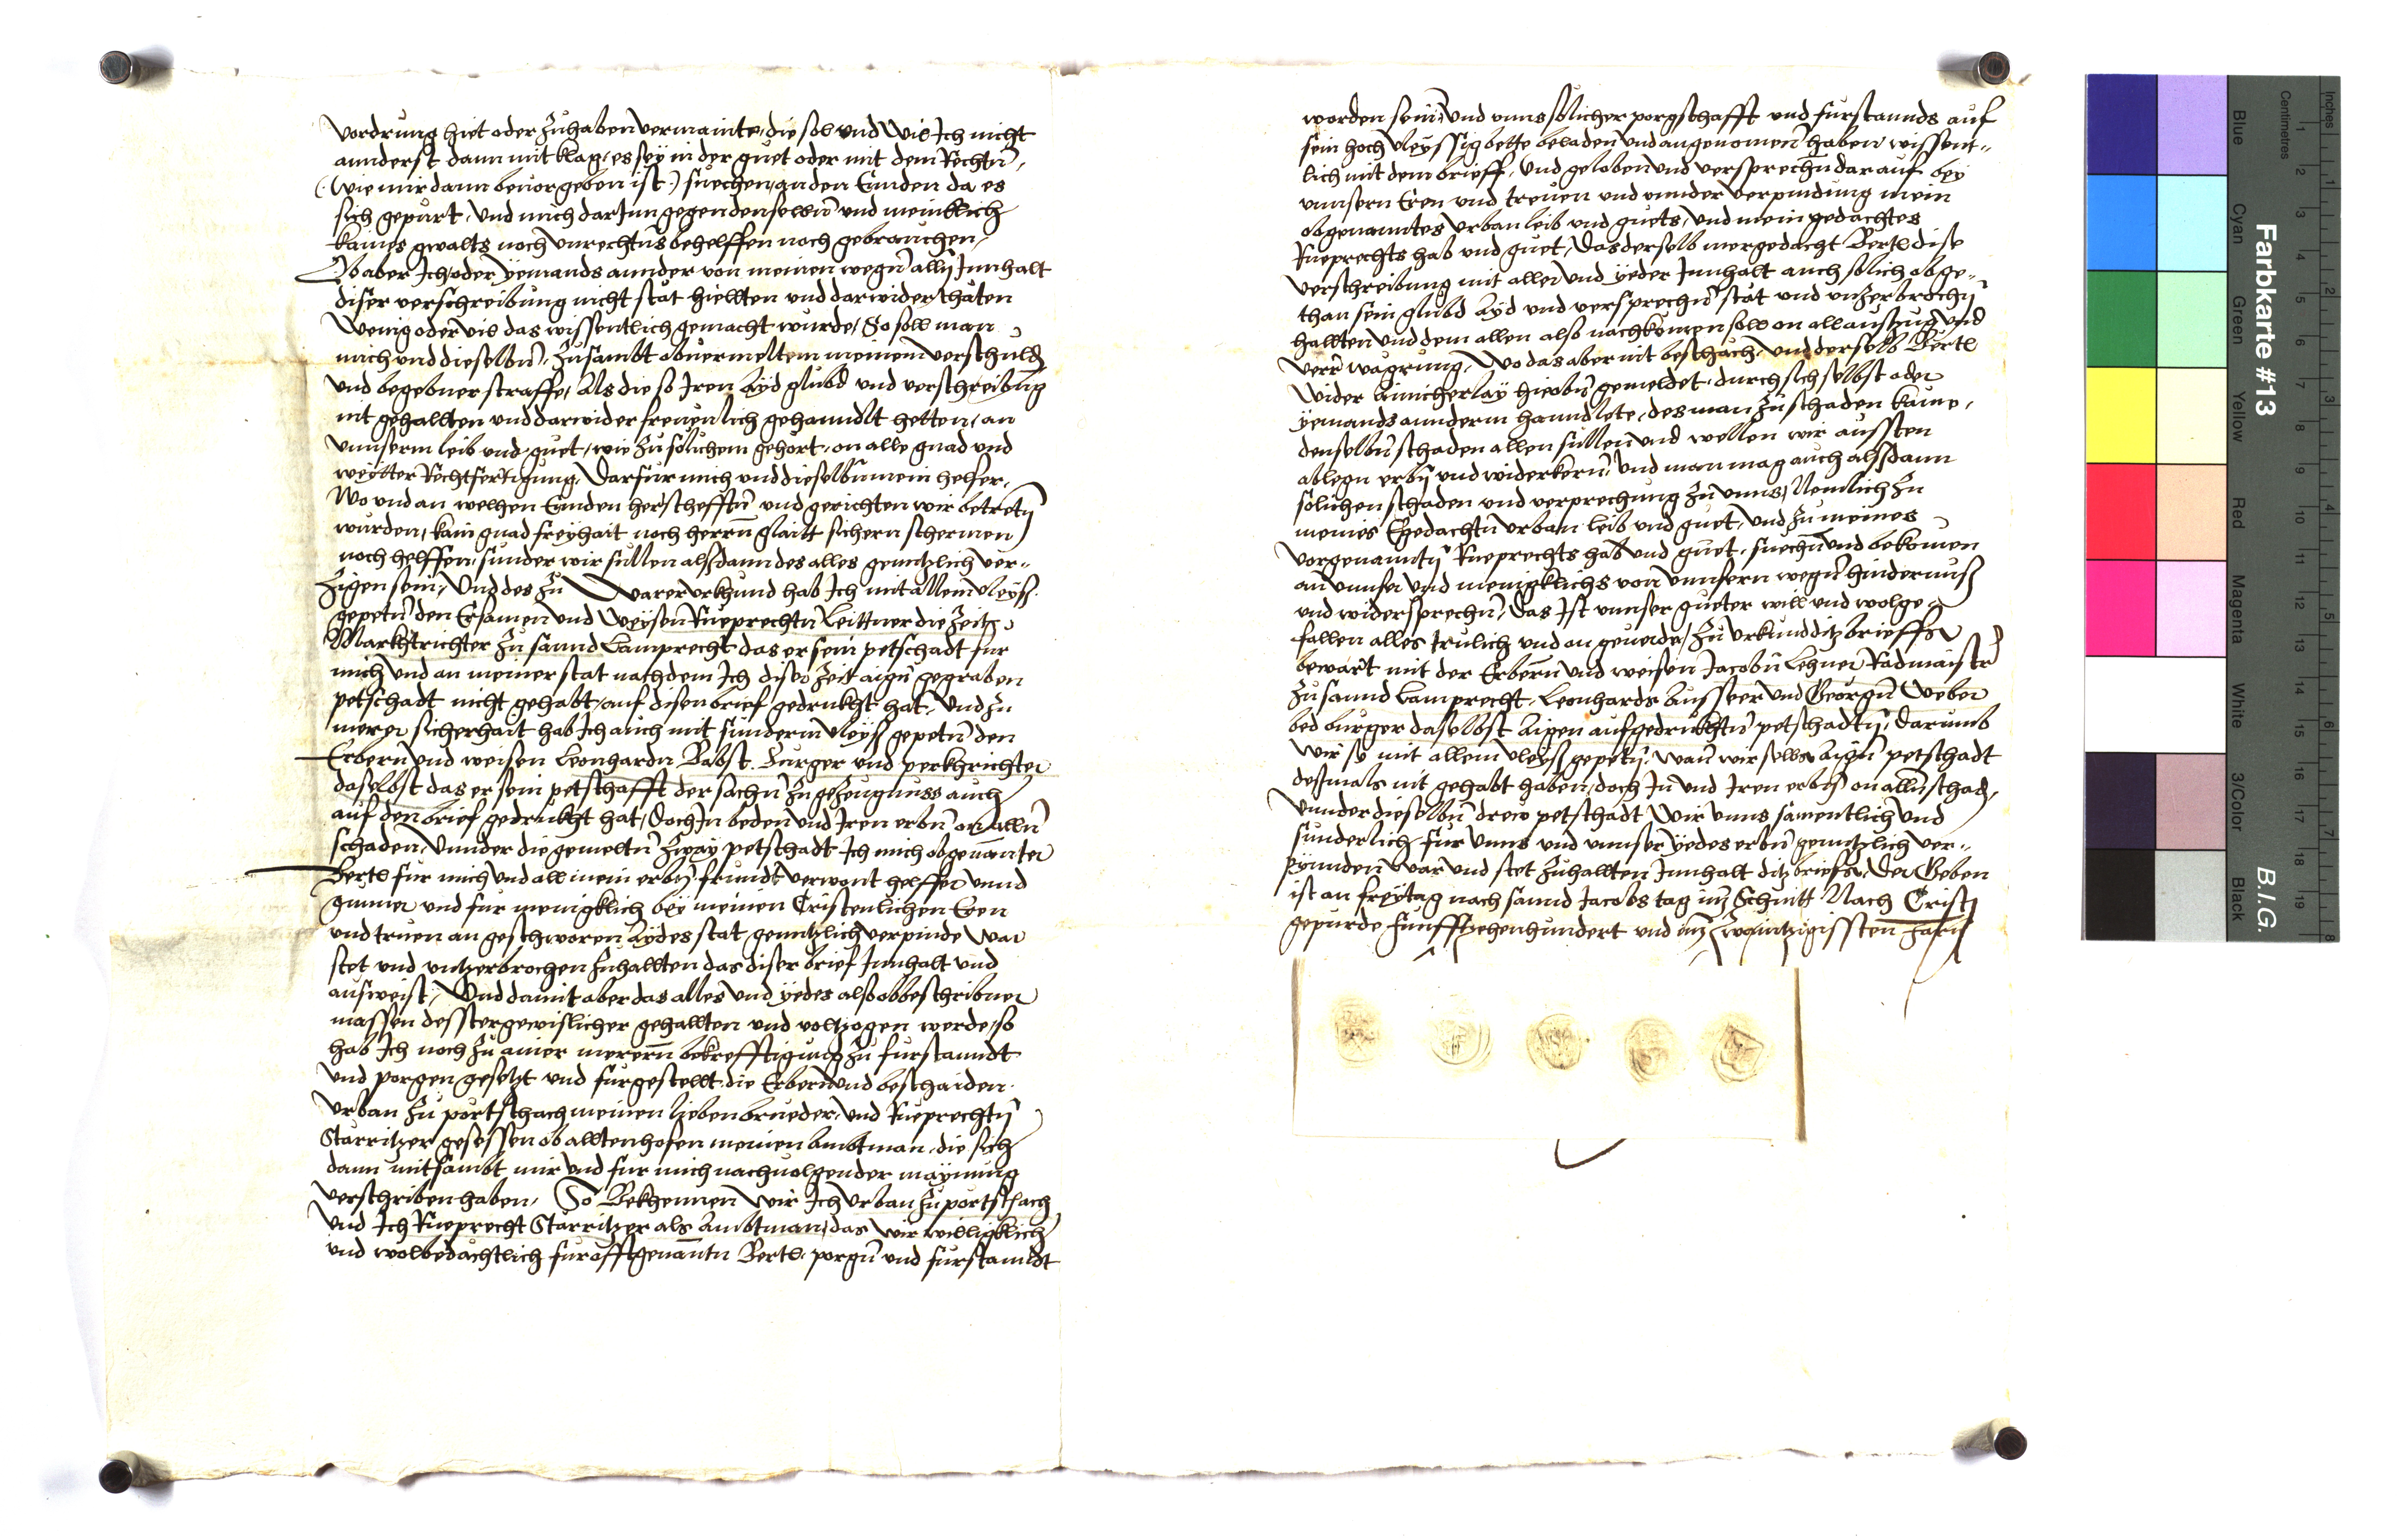 vordrung hiet oder zuhaben vermainte, die sol und wil Ich nicht
annderst dann mit klag, es seÿ in der guet oder mit dem Rechtn̄,
(: wie mir dann bevor geben ist :) suechen, an den Ennden da es
sich gepürt, Und mich darInn gegen denselbn̄ und meinklich
kaines gwalts noch unrechtns behelffen noch gebrauchen,
Ob aber Ich oder Yemands annder von meinen wegn̄ allß Innhalt
diser verschreibung nicht stät hiellten und darwider thäten
Wenig oder vil das wissentlich gemacht wurde, So soll man
mich und dieselbn̄, Zusambt obvermeltem meinem verschuld
und begebner straffe, Als die so Iren Ayd glubd und verschreibūg
nit gehallten und darwider frevenlich gehanndlt hetten, an
unnserm leib und guet, wie zu sölichem gehört, on alle gnad und
weÿtter Rechtfertigung, Darfur mich und dieselbn̄ mein helfer,
Wo und an welhen Ennden herscheffttn̄ und gerichten wir betretn̄
wurden, kain gnad freÿhait noch herrn̄ glaitt sichern schermen
noch helffen, sunder wir sullen alßdann des alles genntzlich ver-
zigen sein, Und des zu Warer urkhund hab Ich mit allem vleÿss
gepetn̄ den Ersamen und Weÿsen Rueprechtn̄ Leittner die Zeit
Marktrichter zu sannd Lamprecht das er sein petschadt fur
mich und an meiner stat nachdem Ich diser Zeit aign̄ gegraben
petschadt nicht gehabt, auf disen brief gedrukht hat, Und zu
merer sicherhait hab Ich auch mit sunderm vleÿß gepetn̄ den
Erbern und weisen Leonhardn Babst Burger und perkhrichter
daselbst das er sein petschafft der sachn̄ zu gezeugnuss auch
auf den brief gedrukht hat, Doch In beden und Iren erbn̄ on alln̄
schaden, Unnder die gemeltn̄ Zwaÿ petschadt Ich mich obgenannter
Bertl fur mich und all mein erbn̄ frundt verwont helffer unnd
gunner und fur menigklich beÿ meinen Cristenlichen Eren
und truen an geschworen Aÿdes stat genntzlich verpinde war
stet und untzerbrochen zuhallten das diser brief Innhalt und
ausweist, Und damit aber das alles und ÿedes also obbeschribner
massen desstergewislicher gehallten und voltzogen werde, so
hab Ich noch zu ainer merern̄ bekrefftigung zu furstanndt
und porgen gesetzt und furgestellt die Erbern und beschaiden
Urban zu portschach meinen lieben brueder, und Rueprechtn̄
Starritzer gesessen ob alltenhofen meinen Ambtman, die sich
dann mitsambt mir und fur mich nachuolgender maÿnung
verschriben haben, So Bekhennen wir Ich Urban zu portschach
und Ich Rueprecht Starritzer als Ambtman, das wir williglich
und wolbedächtlich fur offtgenanntn Bertl porgn̄ und furstanndt
worden sein, und unns sölicher porgschafft und furstannds auf
sein hoch vleÿssig bette beladen und angenomen haben wissent-
lich mit dem brieff, Und geloben und versprechn̄ darauf beÿ
unnsern Eren und treuen und unnder verpindung mein
obgenanntes Urban leib und guets, und mein gedachtes
Rueprechts hab und guet, Das derselb mergedacht Bertl dise
verschreibung mit aller und ÿeder Innhalt auch solich obge-
than sein glubd Aÿd und versprechn̄ stät und unzerbrochn̄
hallten und dem allen also nachkomen soll on all auszug und
verr wagrung, Wo das aber nit beschäch, und derselb Bertl
wider ainicherlaÿ hieobn̄ gemeldet, durch sich selbst oder
ÿemands annderm hanndlete, des man zu schaden käme,
denselbn̄ schaden allen sullen und wellen wir aussten
ablegn erbn̄ und widerkern̄, Und man mag auch alßdann
sölichen schaden und versprechung zu unns, Nemlich zu
meines Egedachtn̄ Urban leib und guet, und zu meines
vorgenanntn̄ Rueprechts hab und guet, suechn̄ und bekomen
an unnser und menigklichs von unnsern wegn̄ hindernuß
und widersprechn̄, Das Ist unnser gueter will und wolge-
fallen alles trulich und an geuerde, Zu Urkund ditz brieffs
bewart mit der Erbern̄ und weisen Jacobn̄ Lehner Radmaister
zu sannd Lamprecht, Leonhards Ausseer und Georgn̄ Weber
bed burger daselbst Aigen aufgedrukhtn̄ petschadtn̄, Darumb
wir sÿ mit allem vleÿß gepetn̄, Wan̄ wir selbs Aign̄ petschadt
deßmals nit gehabt haben, doch In̄ und Iren erbn̄ on alln̄ schad,
Unnder dieselbn̄ drew petschadt Wir unns samentlich und
sunderlich fur unns und unnser ÿedes erbn̄ genntzlich ver-
pynnden war und stet zuhallten Innhalt ditz briefs, Der Geben
ist an freÿtag nach sannd Jacobs tag im Schnitt Nach Cristi
gepurde Funfftzehenhundert und im Zwaintzigissten Jarn
Farbkarte #13
B.I.G.
Blue Cyan Green Yellow Red Magenta White 3/Color Black
Centimetres 1 2 3 4 5 6 7 8 9 10 11 12 13 14 15 16 17 18 19
Inches 1 2 3 4 5 6 7 8